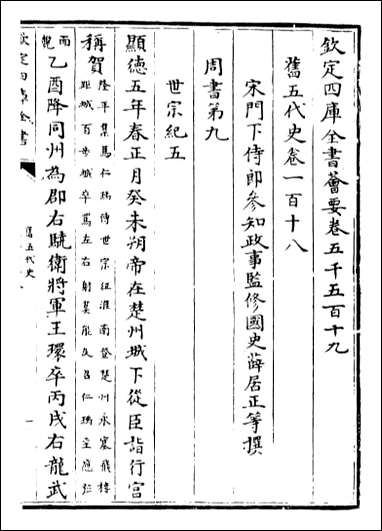 欽定四庫全書薈要卷五千五百十九
舊五代史卷一百十八
宋門下侍郎參知政事監修國史薛居正等撰
周書第九
世宗紀五
顯德五年春正月癸未朔帝在楚州城下從臣詣行宮
稱賀
隆平集馬仁瑀侍世宗征淮南登楚州水寨飛樓
距城百步城卒罵左右射莫能及召仁瑀至應弦
而
乙酉降同州為郡右驍衛將軍王環卒丙戌右龍武
欽定四庫全書
舊五代史
一